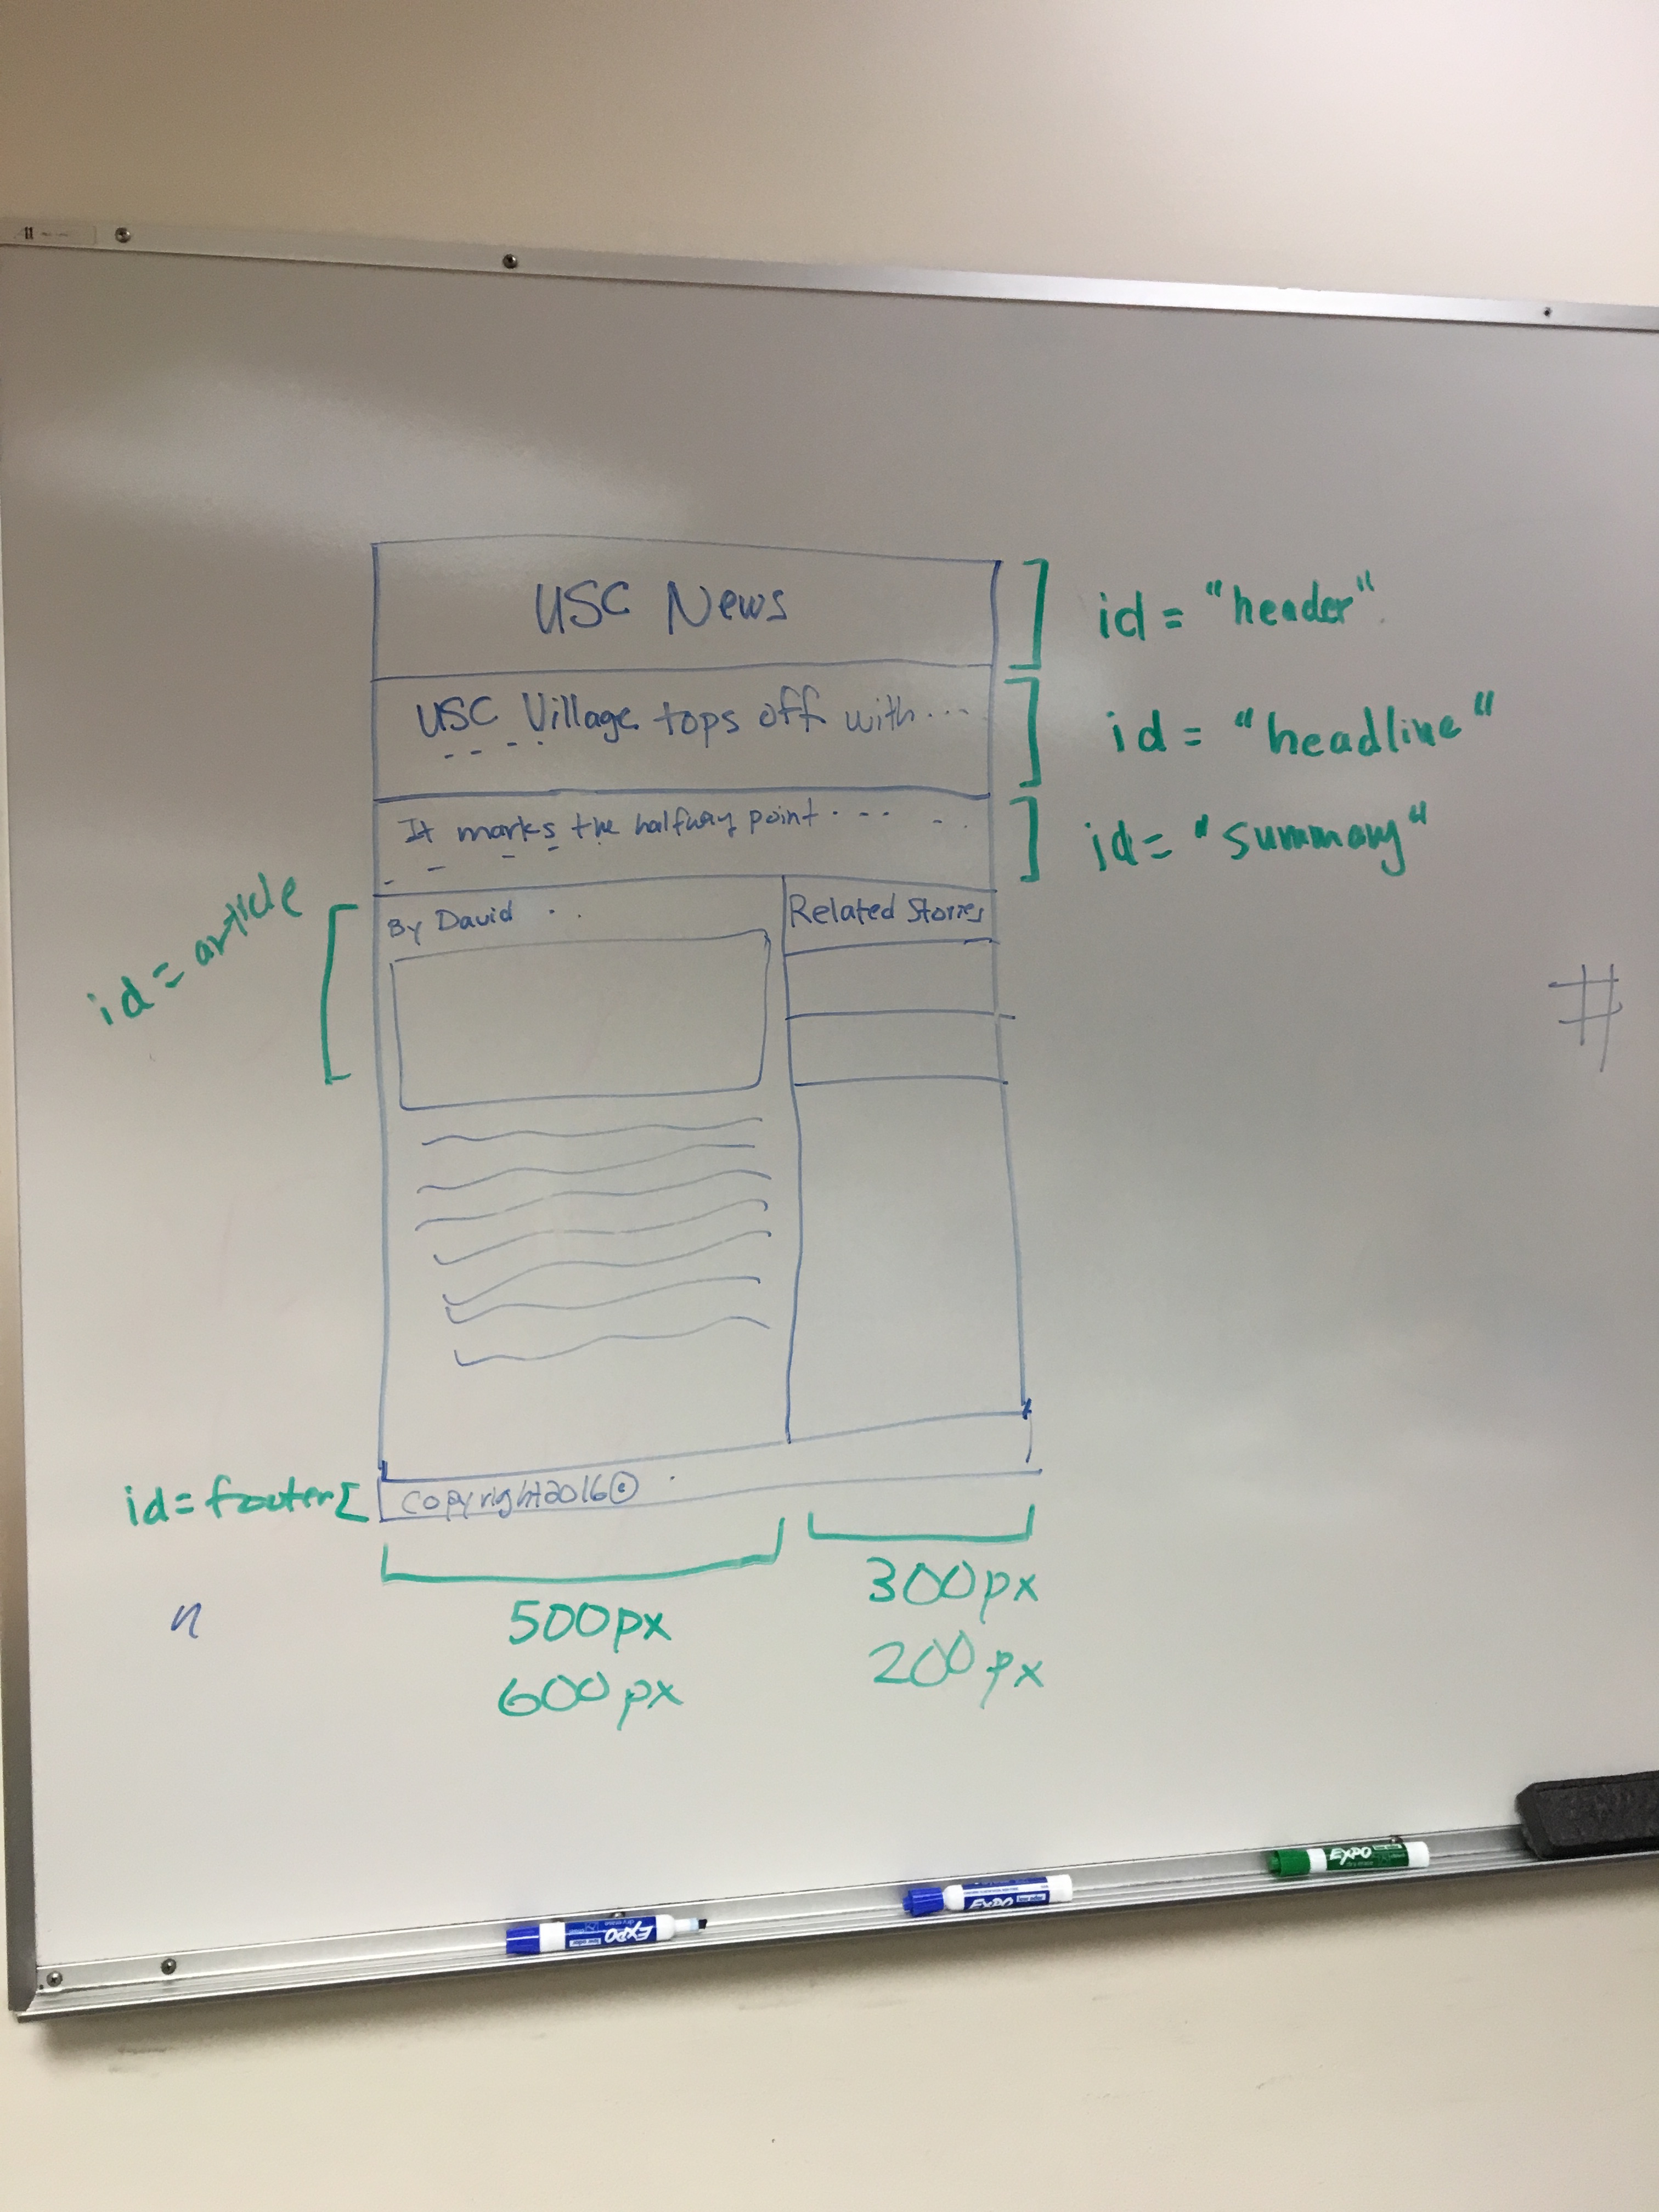 USC News
id = "header"
USC Village tops off with...
id = "headline"
It marks the halfway point...
id = "summary"
id = article
By David ..
Related Stories
#
id = footer
Copyright 2016 ©
500px
300px
600px
200px
n
EXPO
EXPO
EXPO